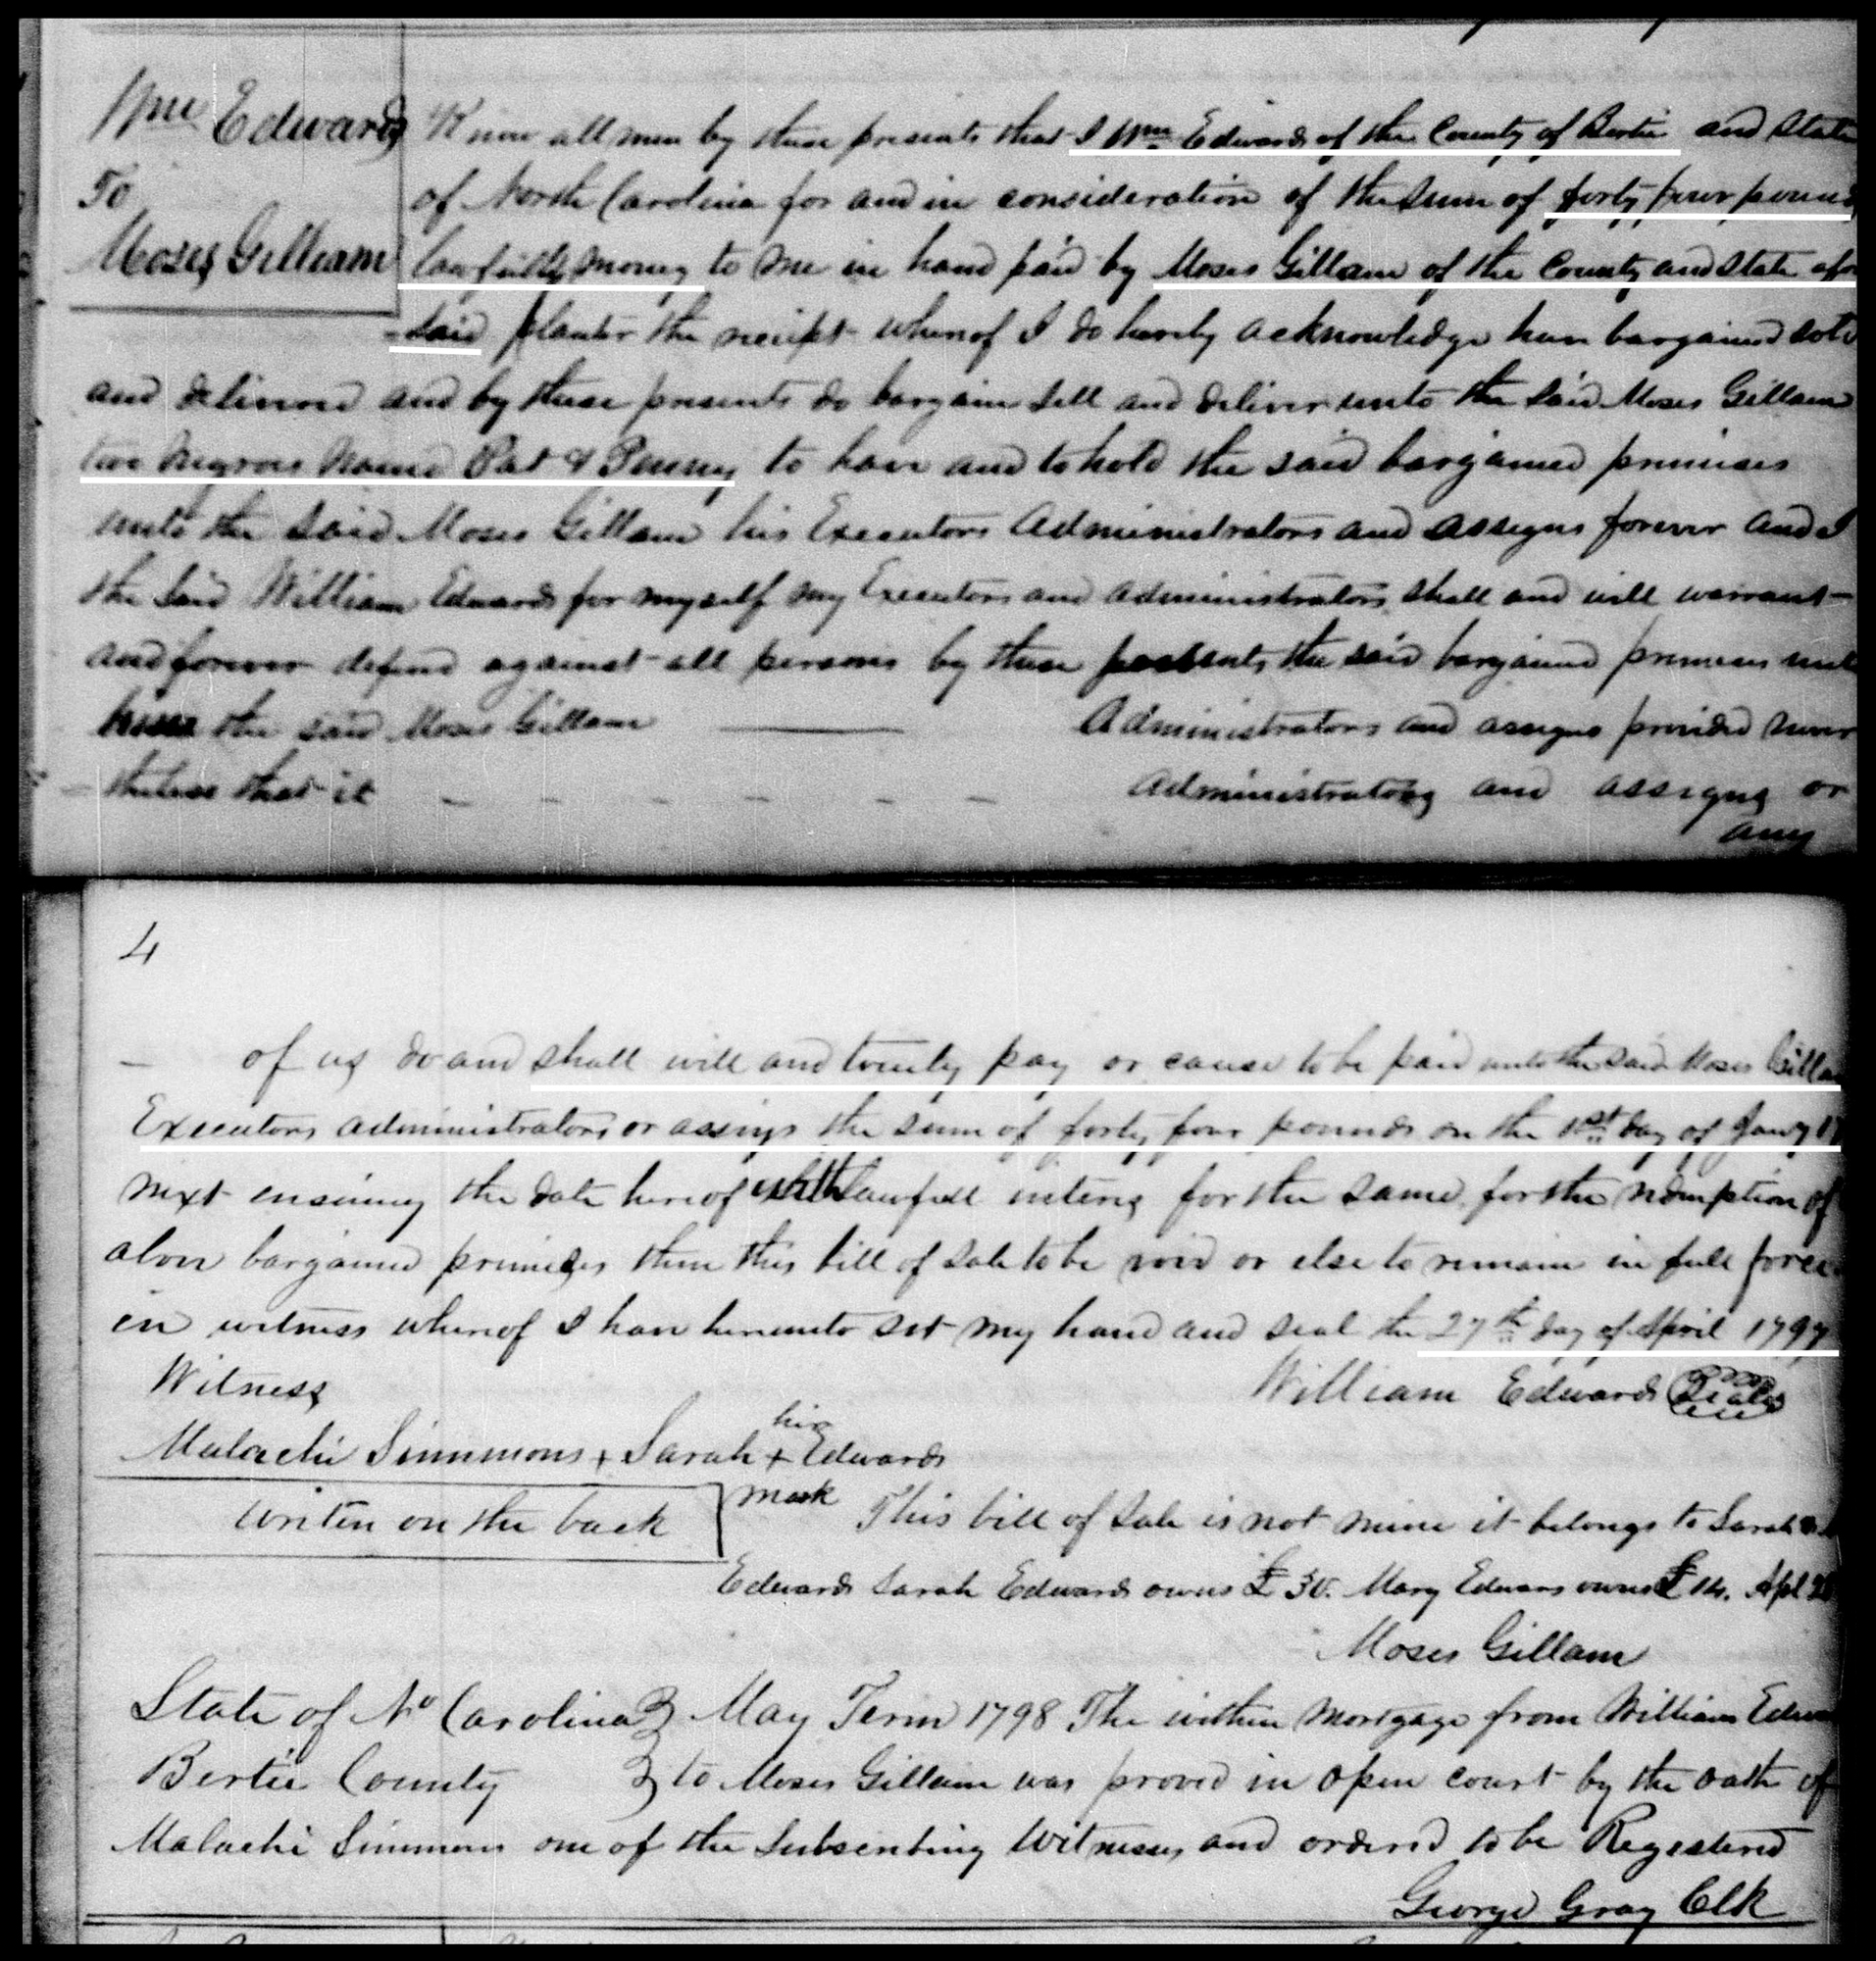 Wm Edwards
To
Moses Gilliam
Know all men by these presents that I Wm Edwards of the County of Bertie and State
of North Carolina for and in consideration of the sum of forty four pounds
lawfully money to me in hand paid by Moses Gillam of the County and State afore
-said planter the receipt whereof I do hereby acknowledge have bargained sold
and delivered and by these presents do bargain sell and deliver unto the said Moses Gillam
two negroes named Pat & Penny to have and to hold the said bargained premises
unto the said Moses Gillam his Executors Administrators and assigns forever and I
the said William Edwards for myself my Executors and administrators shall and will warrant
and forever defend against all persons by these presents the said bargained premises unto
him the said Moses Gillam —— Administrators and assigns provided never
-theless that it - - - - - - Administrators and assigns or
any
4
- of us do and shall will and truely pay or cause to be paid unto the said Moses Gillam
Executors administrators or assigns the sum of forty four pounds on the 1st day of Jany
next ensuing the date hereof with lawfull interes for the same for the redemption of
above bargained premises then this bill of sale to be void or else to remain in full force
in witness whereof I have hereunto set my hand and seal the 27th day of April 1797
Witness
William Edwards Seal
Malachi Simmons + Sarah + Edwards
her
mark
writen on the back
This bill of sale is not mine it belongs to Sarah
Edwards Sarah Edwards owns £ 30. Mary Edwars owns £ 14. Apl
Moses Gillam
State of No Carolina } May Term 1798 The within Mortgage from William Edwa
Bertie County } to Moses Gillam was proved in open court by the oath of
Malachi Simmons one of the Subscribing Witnesses and ordered to be Registered
George Gray Clk